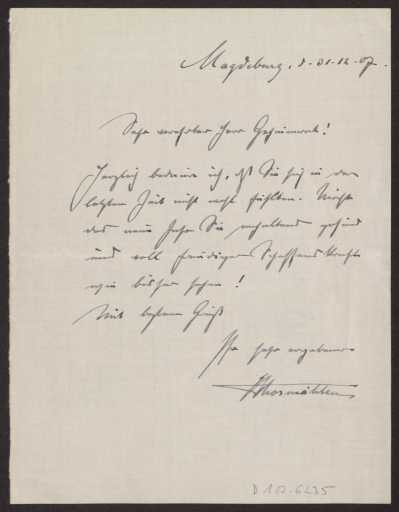 Magdeburg, d. 31.12.07.
Sehr verehrter Herr Geheimrat!
Herzlich bedaure ich, daß Sie sich in der
letzten Zeit nicht wohl fühlten. Möchte
das neue Jahr Sie anhaltend gesund
und voll freudiger Schaffenskraft
wie bisher sehen!
Mit bestem Gruß
Ihr sehr ergebener
Thormählen
D 107-6235